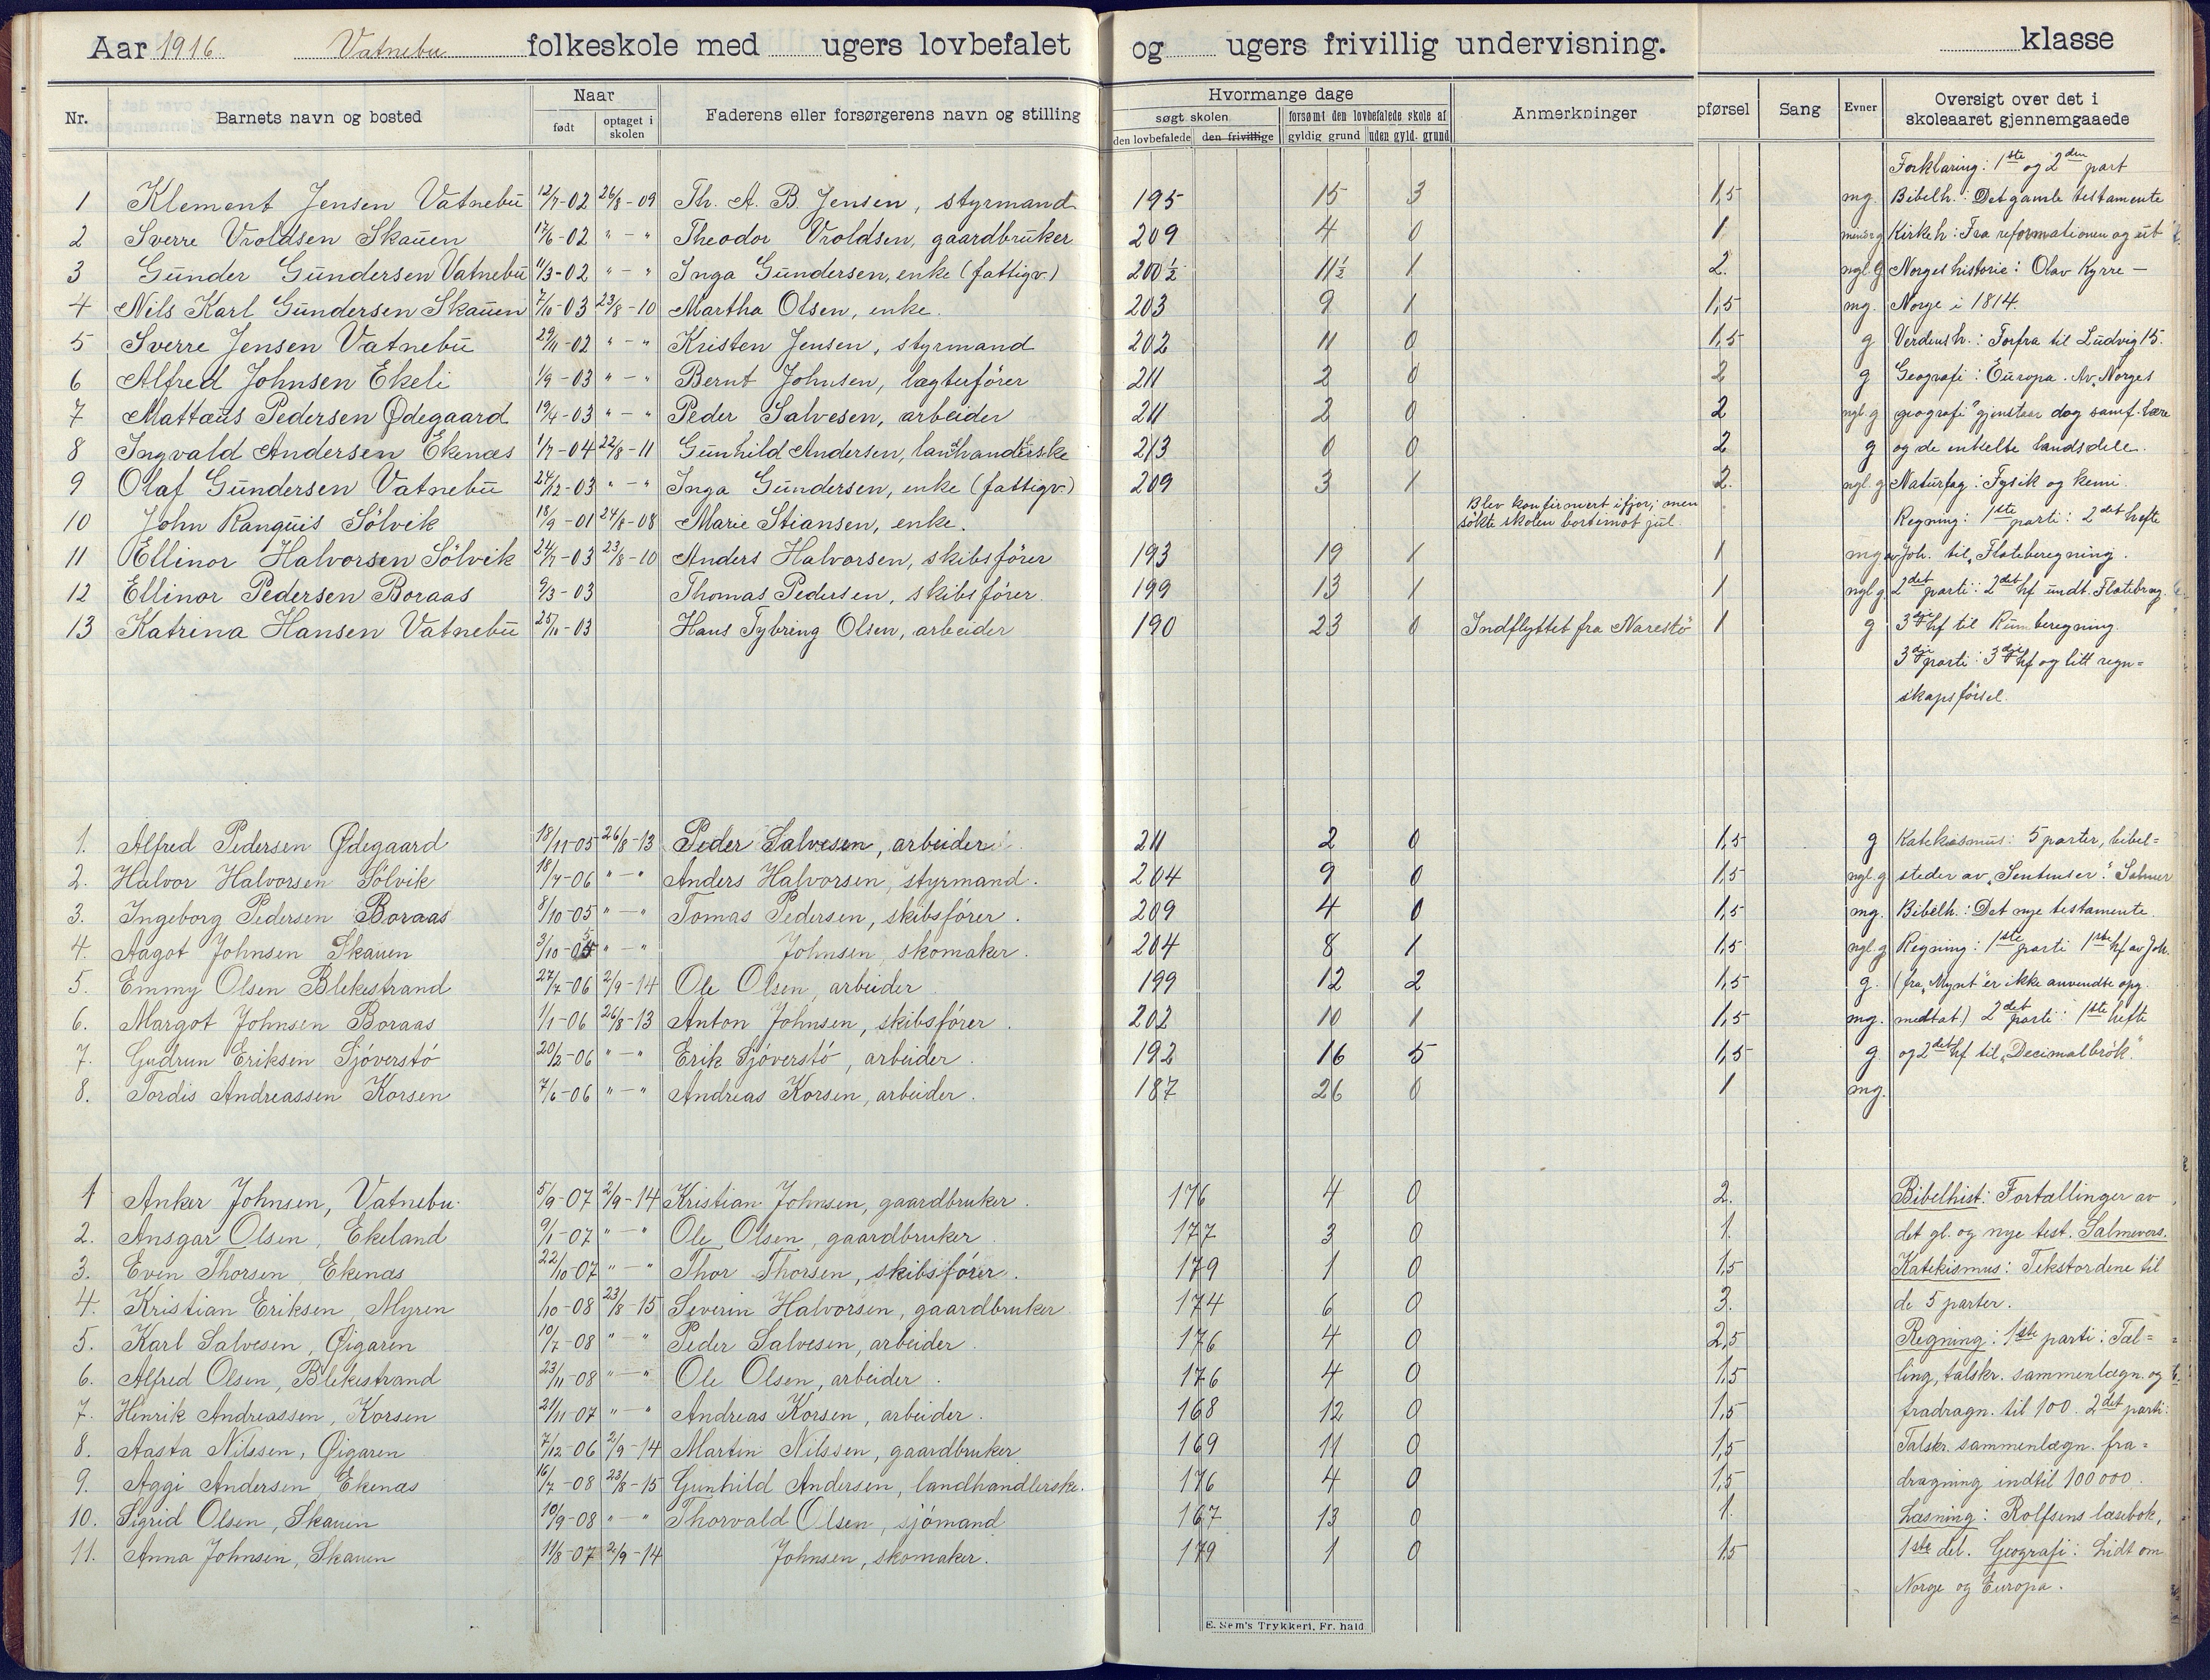 Aar 1916 Vatnebu folkeskole med ugers lovbefalet og ugers frivillig undervisning. klasse
Nr. Barnets navn og bosted Naar født optaget i skolen Faderens eller forsørgerens navn og stilling Hvormange dage søgt skolen den lovbefalede den frivillige forsømt den lovbefalede skole af gyldig grund uden gyld. grund Anmerkninger pførsel Sang Evner Oversigt over det i skoleaaret gjennemgaaede
Forklaring: 1ste og 2den part
1 Klement Jensen Vatnebu 12/7-02 26/8-09 Th. A. B. Jensen, styrmand 195 15 3 1,5 mg. Bibelh.: Det gamle testamente
2 Sverre Vroldsen Skauen 17/6-02 " - " Theodor Vroldsen, gaardbruker 209 4 0 1 Kirkeh: Fra reformationen og ut
3 Gunder Gundersen Vatnebu 11/3-02 " - " Inga Gundersen, enke (fattigv.) 200½ 11½ 1 2. ngl. g Norges historie: Olav Kyrre —
4 Nils Karl Gundersen Skauen 7/10-03 23/8-10 Martha Olsen, enke. 203 9 1 1,5 mg. Norge i 1814.
5 Sverre Jensen Vatnebu 29/11-02 " - " Kristen Jensen, styrmand 202 11 0 1,5 g Verdensh.: Forfra til Ludvig 15.
6 Alfred Johnsen Ekeli 1/9-03 " - " Bernt Johnsen, lægterfører 211 2 0 2 g Geografi: Europa. Av „Norges
7 Mattæus Pedersen Ødegaard 19/4-03 " - " Peder Salvesen, arbeider 211 2 0 2 ngl. g geografi" gjenstaar dog samf. lære
8 Ingvald Andersen Ekenæs 1/7-04 22/8-11 Gunhild Andersen, landhandlerske 213 0 0 2 g og de enkelte landsdele.
9 Olaf Gundersen Vatnebu 24/12-03 " - " Inga Gundersen, enke (fattigv.) 209 3 1 2. ngl. g Naturfag: Fysik og kemi.
10 John Ranquis Sölvik 18/9-01 24/8-08 Marie Stiansen, enke. Blev konfirmert ifjor; men søkte skolen bortimot jul. Regning: 1ste parti: 2det hefte
11 Ellinor Halvorsen Sölvik 24/7-03 23/8-10 Anders Halvorsen, skibsfører 193 19 1 1 mg av Joh. til „Flateberegning.
12 Ellinor Pedersen Boraas 9/3-03 Thomas Pedersen, skibsfører. 199 13 1 1 ngl g. 2det parti: 2det hf undt. Flatebrg.
13 Katrina Hansen Vatnebu 25/10-03 Hans Tybring Olsen, arbeider 190 23 0 Indflyttet fra Narestö 1 g 3dje hf til Rumberegning.
3dje parti: 3dje hf og litt regn=
skapsførsel.
1. Alfred Pedersen Ødegaard 18/11-05 26/8-13 Peder Salvesen, arbeider 211 2 0 1,5 g Katekismus: 5 parter, bibel=
2. Halvor Halvorsen Sölvik 18/4-06 " - " Anders Halvorsen, styrmand. 204 9 0 1,5 ngl. g steder av „Sentenser". Salmer
3. Ingeborg Pedersen Boraas 8/10-05 " - " Tomas Pedersen, skibsfører. 209 4 0 1,5 mg. Bibelh.: Det nye testamente.
4. Aagot Johnsen Skauen 3/10-05 " - " Johnsen, skomaker. 204 8 1 1,5 ngl. g Regning: 1ste parti 1ste hf av Joh.
5. Emmy Olsen Blekestrand 27/7-06 2/9-14 Ole Olsen, arbeider. 199 12 2 1,5 g. (fra „Mynt" er ikke anvendte opg.
6. Margot Johnsen Boraas 1/1-06 26/8-13 Anton Johnsen, skibsfører. 202 10 1 1,5 mg. medtat.) 2det parti: 1ste hefte
7. Gudrun Eriksen Sjöverstö 20/2-06 " - " Erik Sjöverstö, arbeider. 192 16 5 1,5 g. og 2det hf til „Decimalbrök."
8. Tordis Andreassen Korsen 7/6-06 " - " Andreas Korsen, arbeider. 187 26 0 1 mg.
1 Anker Johnsen, Vatnebu. 5/9-07 2/9-14 Kristian Johnsen, gaardbruker. 176 4 0 2. Bibelhist: Fortællinger av
2. Ansgar Olsen, Ekeland 9/1-07 " - " Ole Olsen, gaardbruker 177 3 0 1. det gl. og nye test. Salmevers.
3. Even Thorsen, Ekenæs 22/10-07 " - " Thor Thorsen, skibsfører. 179 1 0 1,5 Katekismus: Tekstordene til
4. Kristian Eriksen, Myren /10-08 23/8-15 Severin Halvorsen, gaardbruker. 174 6 0 3. de 5 parter.
5. Karl Salvesen, Øigaren 10/7-08 " " Peder Salvesen, arbeider. 176 4 0 2,5 Regning: 1ste parti: Tæl=
6. Alfred Olsen, Blekestrand 23/11-08 " - " Ole Olsen, arbeider. 176 4 0 1,5 ling, talskr. sammenlægn. og
7. Henrik Andreassen, Korsen 21/11-07 " - " Andreas Korsen, arbeider. 168 12 0 1,5 fradragn. til 100. 2det parti:
8. Aasta Nilssen, Øigaren 7/12-06 2/9-14 Martin Nilssen, gaardbruker 169 11 0 1,5 Talskr. sammenlægn. fra=
9. Aggi Andersen Ekenæs 16/7-08 23/8-15 Gunhild Andersen, landhandlerske. 176 4 0 1,5 dragning indtil 100 000.
10. Sigrid Olsen, Skauen 10/9-08 " - " Thorvald Olsen, sjömand 167 13 0 1. Læsning: Rolfsens læsebok,
11. Anna Johnsen, Skauen 11/8-07 2/9-14 Johnsen, skomaker. 179 1 0 1,5 1ste del. Geografi: Lidt om
Norge og Europa.
E. Sem's Trykkeri, Fr. hald